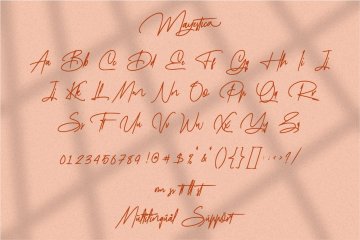 Mayestica
Aa Bb Cc Dd Ee Ff Gg Hh Ii Jj
Kk Ll Mm Nn Oo Pp Qq Rr
Ss Tt Uu Vv Ww Xx Yy Zz
0123456789 !@#$
Multilingual Support